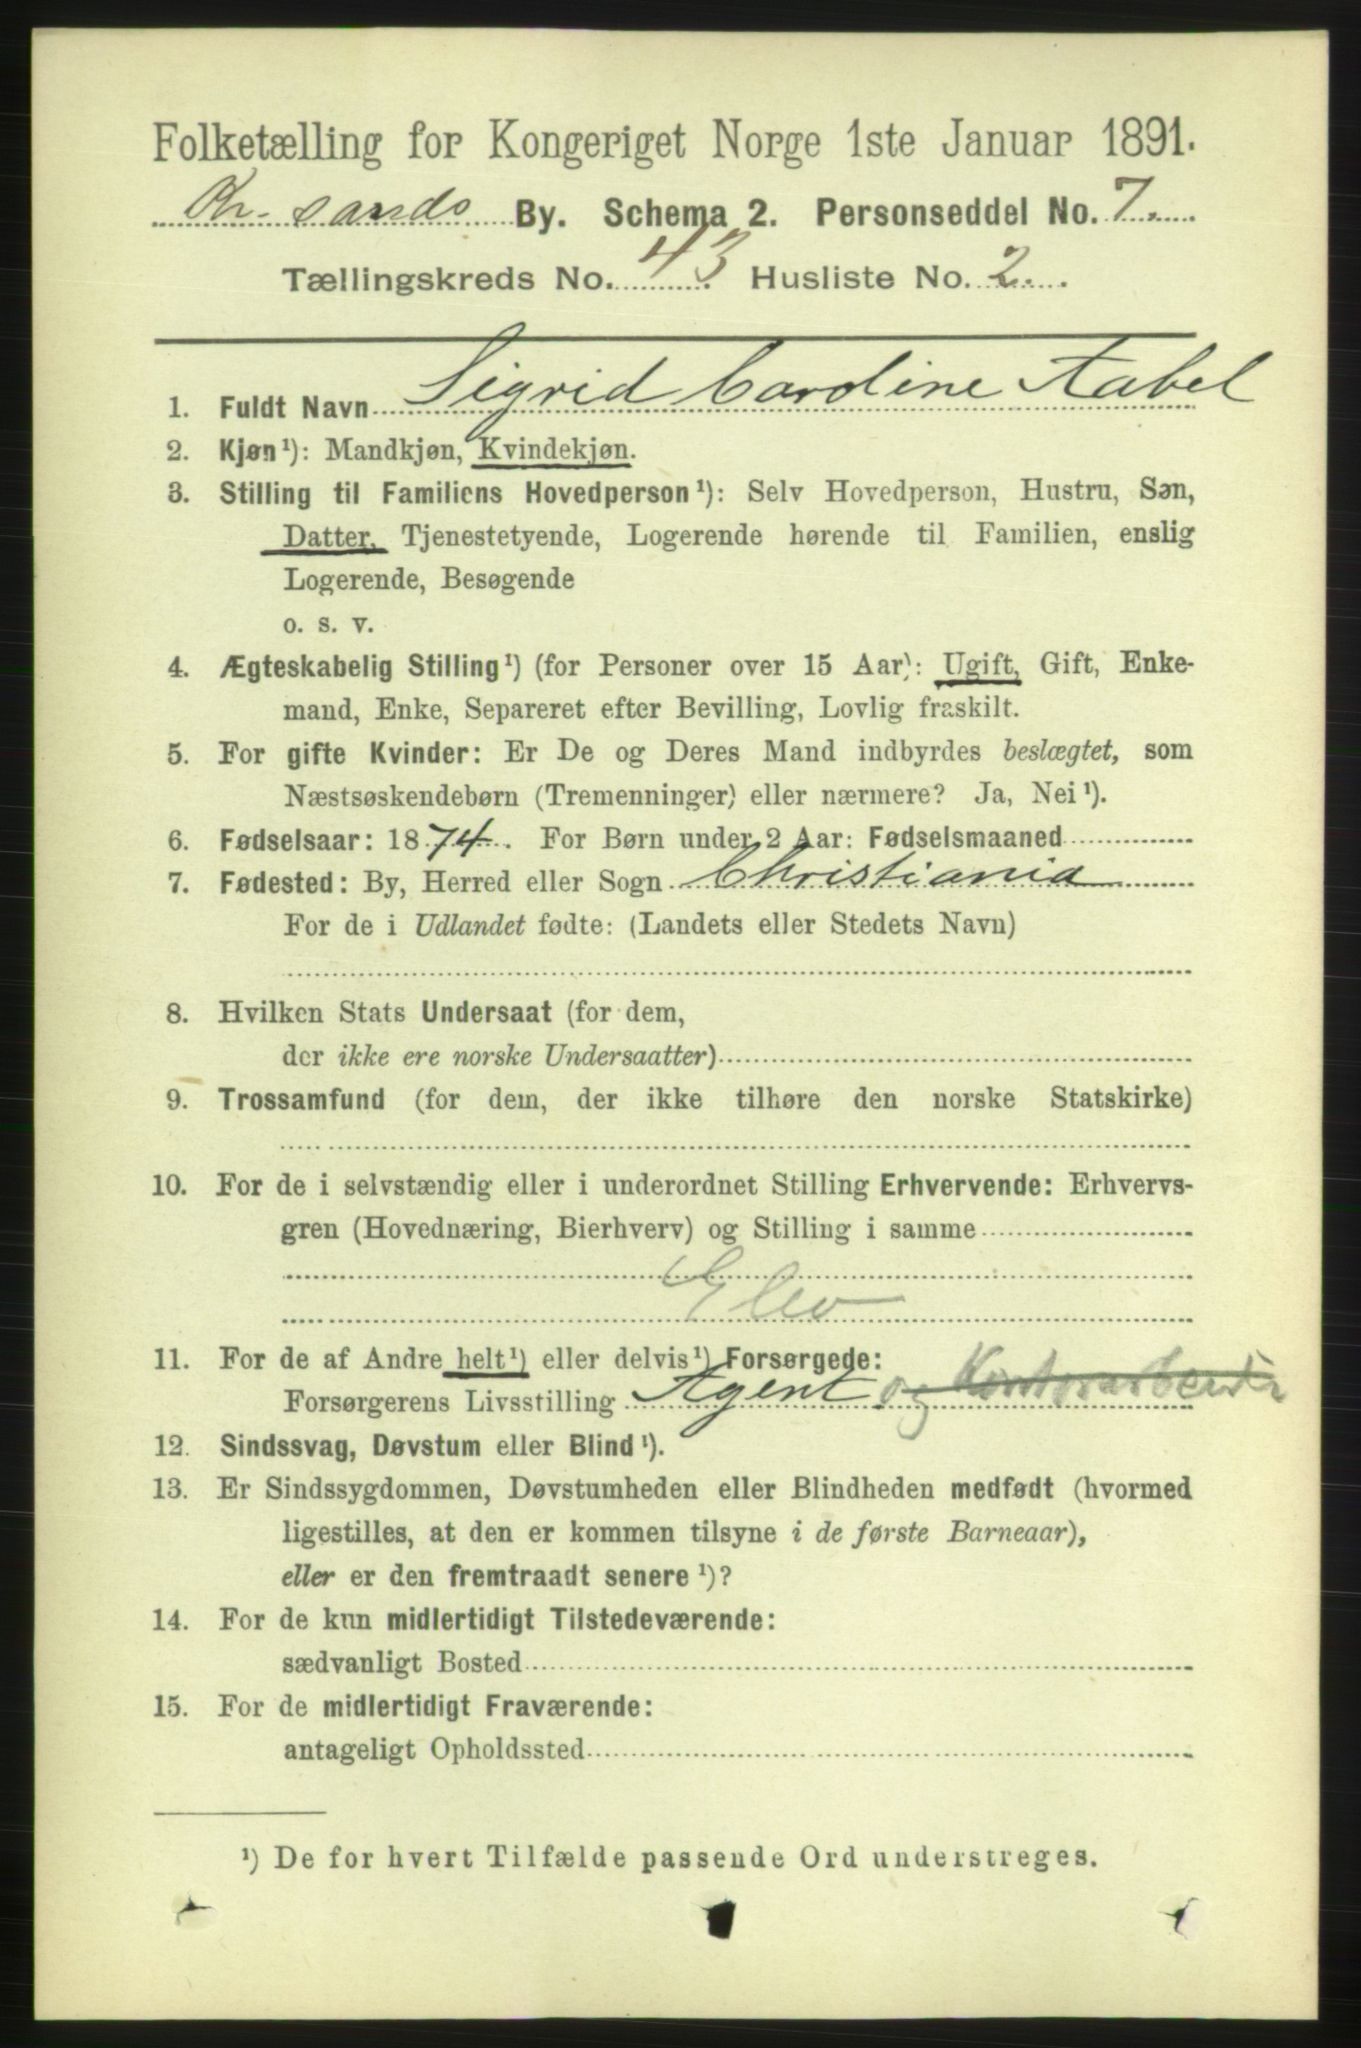 Folketælling for Kongeriget Norge 1ste Januar 1891.
Kr.sands By. Schema 2. Personseddel No. 7.
Tællingskreds No. 43 Husliste No. 2.
1. Fuldt Navn Sigrid Caroline Aabel
2. Kjøn¹): Mandkjøn, Kvindekjøn.
3. Stilling til Familiens Hovedperson¹): Selv Hovedperson, Hustru, Søn,
Datter, Tjenestetyende, Logerende hørende til Familien, enslig
Logerende, Besøgende
o. s. v.
4. Ægteskabelig Stilling¹) (for Personer over 15 Aar): Ugift, Gift, Enke-
mand, Enke, Separeret efter Bevilling, Lovlig fraskilt.
5. For gifte Kvinder: Er De og Deres Mand indbyrdes beslægtet, som
Næstsøskendebørn (Tremenninger) eller nærmere? Ja, Nei¹).
6. Fødselsaar: 1874. For Børn under 2 Aar: Fødselsmaaned
7. Fødested: By, Herred eller Sogn Christiania
For de i Udlandet fødte: (Landets eller Stedets Navn)
8. Hvilken Stats Undersaat (for dem,
der ikke ere norske Undersaatter)
9. Trossamfund (for dem, der ikke tilhøre den norske Statskirke)
10. For de i selvstændig eller i underordnet Stilling Erhvervende: Erhvervs-
gren (Hovednæring, Bierhverv) og Stilling i samme
Elev
11. For de af Andre helt¹) eller delvis¹) Forsørgede:
Forsørgerens Livsstilling Agent og Kontorarbeide
12. Sindssvag, Døvstum eller Blind¹).
13. Er Sindssygdommen, Døvstumheden eller Blindheden medfødt (hvormed
ligestilles, at den er kommen tilsyne i de første Barneaar),
eller er den fremtraadt senere¹)?
14. For de kun midlertidigt Tilstedeværende:
sædvanligt Bosted
15. For de midlertidigt Fraværende:
antageligt Opholdssted
¹) De for hvert Tilfælde passende Ord understreges.